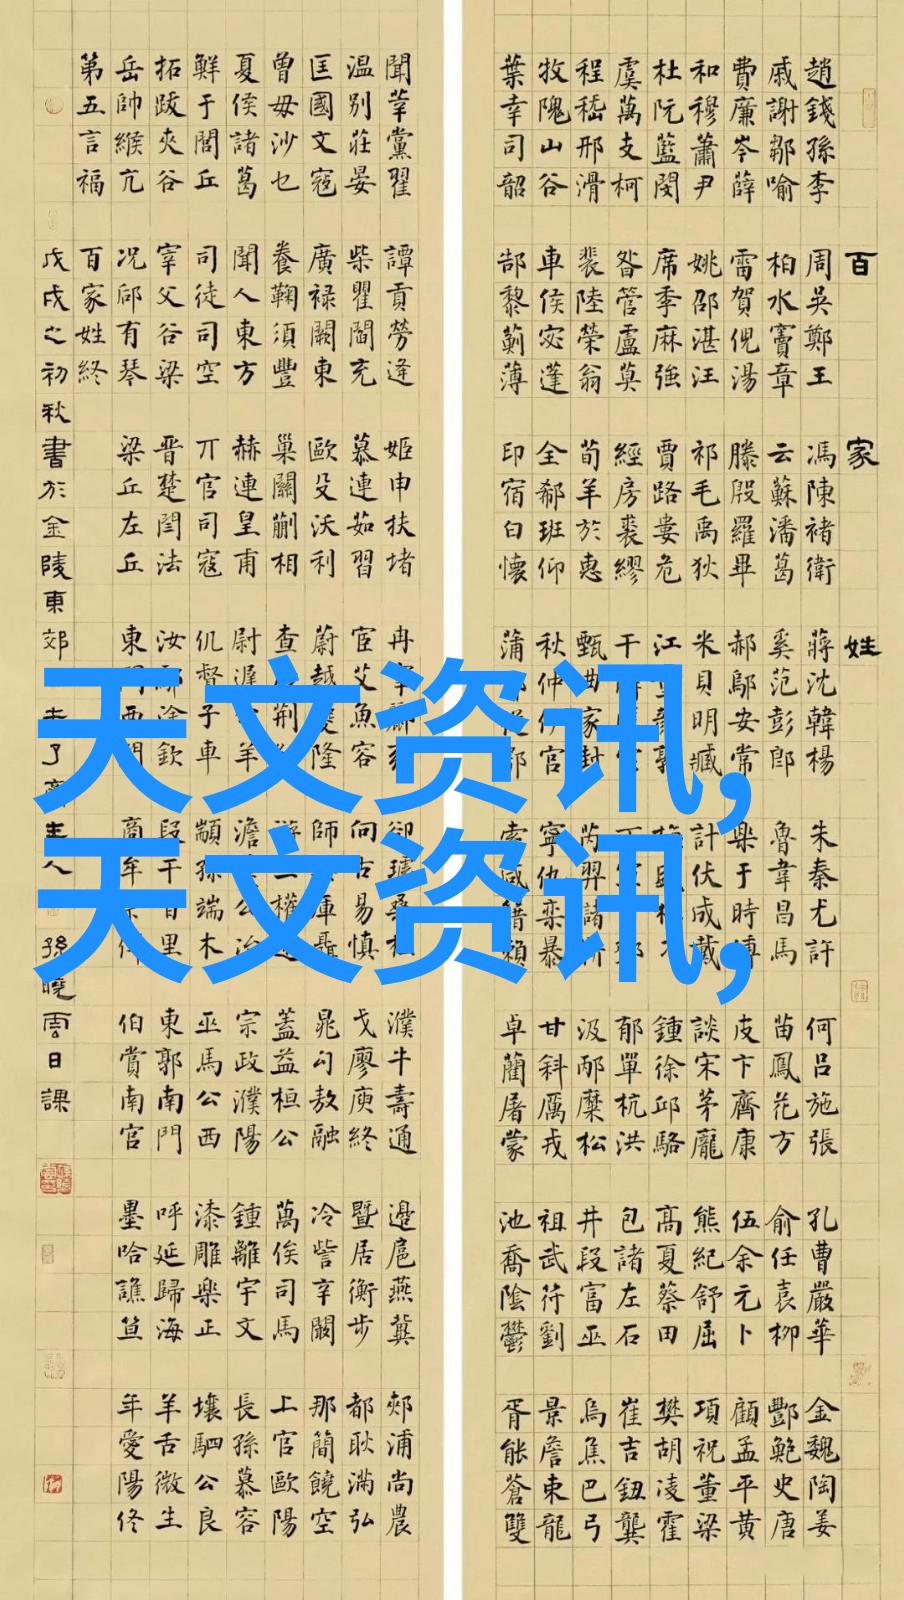 百家姓
趙錢孫李 周吳鄭王 馮陳褚衛 蔣沈韓楊 朱秦尤許 何呂施張 孔曹嚴華 金魏陶姜
戚謝鄒喻 柏水竇章 云蘇潘葛 奚范彭郎 魯韋昌馬 苗鳳花方 俞任袁柳 酆鮑史唐
費廉岑薛 雷賀倪湯 滕殷羅畢 郝鄔安常 樂于時傅 皮卞齊康 伍余元卜 顧孟平黃
和穆蕭尹 姚邵湛汪 祁毛禹狄 米貝明臧 計伏成戴 談宋茅龐 熊紀舒屈 項祝董梁
杜阮藍閔 席季麻強 賈路婁危 江 鍾徐邱駱 高夏蔡田 樊胡凌霍
虞萬支柯 昝管盧莫 經房裘繆 干 郁單杭洪 包諸左石 崔吉鈕龔
程嵇邢滑 裴陸榮翁 荀羊於惠 甄曲家封 芮羿 汲邴糜松 井段富巫 烏焦巴弓
牧隗山谷 車侯宓蓬 全郗班仰 秋仲伊宮 寧仇欒暴 甘斜厲戎 祖武符劉 景詹束龍
葉幸司韶 郜黎薊薄 印宿白懷 蒲 索咸籍賴 卓藺屠蒙 池喬陰鬱 胥能蒼雙
聞莘黨翟 譚貢勞逄 姬申扶堵 冉 濮牛壽通 邊扈燕冀 郟浦尚農
温別莊晏 柴瞿閻充 慕連茹習 宦艾魚容 向古易慎 戈廖庾終 暨居衡步 都耿滿弘
匡國文寇 廣祿闕東 歐殳沃利 蔚越 隆 師 聶 晁勾敖融 冷訾辛闞 那簡饒空
曾毋沙乜 養鞠須豐 巢關蒯相 查 荆 權 蓋益桓公 萬俟司馬 上官歐陽
夏侯諸葛 聞人東方 赫連皇甫 尉遲 羊 澹 公冶 宗政濮陽 鍾離宇文 長孫慕容
鮮于閭丘 司徒司空 丌官司寇 仉督子車 顓孫端木 巫馬公西 漆雕樂正 壤駟公良
拓跋夾谷 宰父谷梁 晉楚閆法 汝鄢涂欽 段干百里 東郭南門 呼延歸海 羊舌微生
岳帥緱亢 況郈有琴 梁丘左丘 東門西門 商牟 伯賞南宮 墨哈譙笪 年愛陽佟
第五言福 百家姓終
戊戌之初秋書於金陵東郊 未了齋主人 孫曉雲日課
天文资讯,
天文资讯,